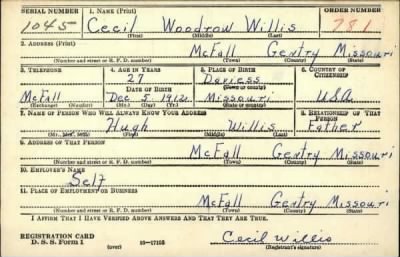 SERIAL NUMBER 1. NAME (Print) ORDER NUMBER
1045 Cecil Woodrow Willis 781
(First) (Middle) (Last)
2. ADDRESS (Print)
McFall Gentry Missouri
(Number and street or R. F. D. number) (Town) (County) (State)
3. TELEPHONE 4. AGE IN YEARS 5. PLACE OF BIRTH 6. COUNTRY OF CITIZENSHIP
27 Daviess
DATE OF BIRTH (Town or county)
McFall Dec 5 1912 Missouri USA
(Exchange) (Number) (Mo.) (Day) (Yr.) (State or country)
7. NAME OF PERSON WHO WILL ALWAYS KNOW YOUR ADDRESS 8. RELATIONSHIP OF THAT PERSON
Hugh Willis Father
(Mr., Mrs., Miss) (First) (Middle) (Last)
9. ADDRESS OF THAT PERSON
McFall Gentry Missouri
(Number and street or R. F. D. number) (Town) (County) (State)
10. EMPLOYER'S NAME
Self
11. PLACE OF EMPLOYMENT OR BUSINESS
McFall Gentry Missouri
(Number and street or R. F. D. number) (Town) (County) (State)
I AFFIRM THAT I HAVE VERIFIED ABOVE ANSWERS AND THAT THEY ARE TRUE.
REGISTRATION CARD Cecil Willis
D. S. S. Form 1 (over) 16—17105 (Registrant's signature)